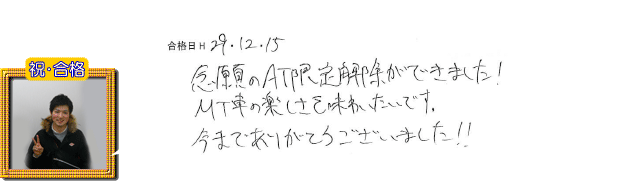 合格日 H 29.12.15
祝・合格
念願のAT限定解除ができました!
MT車の楽しさを味わいたいです。
今までありがとうございました!!